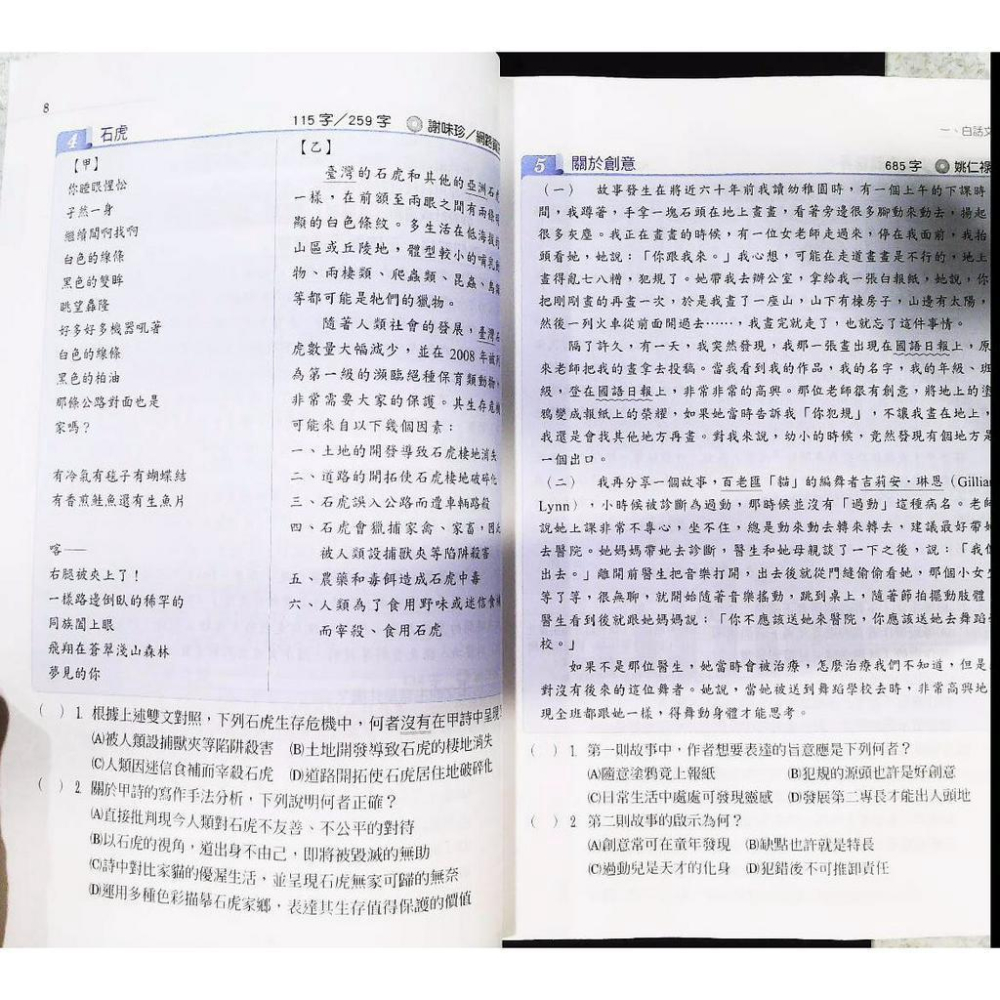 8
4 石虎
115字／259字 謝味珍／網路
【甲】
你瞳眼惺忪
孑然一身
繼續鬧啊找啊
白色的線條
黑色的雙眸
眺望轟隆
好多好多機器吼著
白色的線條
黑色的柏油
那條公路對面也是
家嗎？
有冷氣有毯子有蝴蝶結
有香煎鮭魚還有生魚片
喀——
右腿被夾上了！
一樣路邊倒臥的稀罕的
同族闔上眼
飛翔在蒼翠淺山森林
夢見的你
【乙】
臺灣的石虎和其他的亞洲石虎
一樣，在前額至兩眼之間有兩條明
顯的白色條紋。多生活在低海拔的
山區或丘陵地，體型較小的哺乳動
物、兩棲類、爬蟲類、昆蟲、鳥類
等都可能是牠們的獵物。
隨著人類社會的發展，臺灣石
虎數量大幅減少，並在2008年被列
為第一級的瀕臨絕種保育類動物，
非常需要大家的保護。其生存危機
可能來自以下幾個因素：
一、土地的開發導致石虎棲地消失
二、道路的開拓使石虎棲地破碎化
三、石虎誤入公路而遭車輛路殺
四、石虎會獵捕家禽、家畜，因此
被人類設捕獸夾等陷阱殺害
五、農藥和毒餌造成石虎中毒
六、人類為了食用野味或迷信食補
而宰殺、食用石虎
（ ）1. 根據上述雙文對照，下列石虎生存危機中，何者沒有在甲詩中呈現
(A)被人類設捕獸夾等陷阱殺害 (B)土地開發導致石虎的棲地消失
(C)人類因迷信食補而宰殺石虎 (D)道路開拓使石虎居住地破碎化
（ ）2. 關於甲詩的寫作手法分析，下列說明何者正確？
(A)直接批判現今人類對石虎不友善、不公平的對待
(B)以石虎的視角，道出身不由己，即將被毀滅的無助
(C)詩中對比家貓的優渥生活，並呈現石虎無家可歸的無奈
(D)運用多種色彩描摹石虎家鄉，表達其生存值得保護的價值
一、白話文
5 關於創意
685字 姚仁祿
（一） 故事發生在將近六十年前我讀幼稚園時，有一個上午的下課時
間，我蹲著，手拿一塊石頭在地上畫畫，看著旁邊很多腳動來動去，揚起
很多灰塵。我正在畫畫的時候，有一位女老師走過來，停在我面前，我抬
頭看她，她說：「你跟我來。」我心想，可能在走道畫畫是不行的，地上
畫得亂七八糟，犯規了。她帶我去辦公室，拿給我一張白報紙，她說，你
把剛剛畫的再畫一次，於是我畫了一座山，山下有棟房子，山邊有太陽，
然後一列火車從前面開過去……，我畫完就走了，也就忘了這件事情。
隔了許久，有一天，我突然發現，我那一張畫出現在國語日報上，原
來老師把我的畫拿去投稿。當我看到我的作品，我的名字，我的年級、班
級，登在國語日報上，非常非常的高興。那位老師很有創意，將地上的塗
鴉變成報紙上的榮耀，如果她當時告訴我「你犯規」，不讓我畫在地上，
我還是會找其他地方再畫。對我來說，幼小的時候，竟然發現有個地方是
一個出口。
（二） 我再分享一個故事，百老匯「貓」的編舞者吉莉安．琳恩（Gillian
Lynn），小時候被診斷為過動，那時候並沒有「過動」這種病名。老師
說她上課非常不專心，坐不住，總是動來動去轉來轉去，建議最好帶她
去醫院。她媽媽帶她去診斷，醫生和她母親談了一下之後，說：「我們
出去。」離開前醫生把音樂打開，出去後就從門縫偷偷看她，那個小女生
等了等，很無聊，就開始隨著音樂搖動，跳到桌上，隨著節拍擺動肢體
醫生看到後就跟她媽媽說：「你不應該送她來醫院，你應該送她去舞蹈學
校。」
如果不是那位醫生，她當時會被治療，怎麼治療我們不知道，但是
對沒有後來的這位舞者。她說，當她被送到舞蹈學校去時，非常高興地
現全班都跟她一樣，得舞動身體才能思考。
（ ）1. 第一則故事中，作者想要表達的旨意應是下列何者？
(A)隨意塗鴉竟上報紙 (B)犯規的源頭也許是好創意
(C)日常生活中處處可發現靈感 (D)發展第二專長才能出人頭地
（ ）2 第二則故事的啟示為何？
(A)創意常可在童年發現 (B)缺點也許就是特長
(C)過動兒是天才的化身 (D)犯錯後不可推卸責任